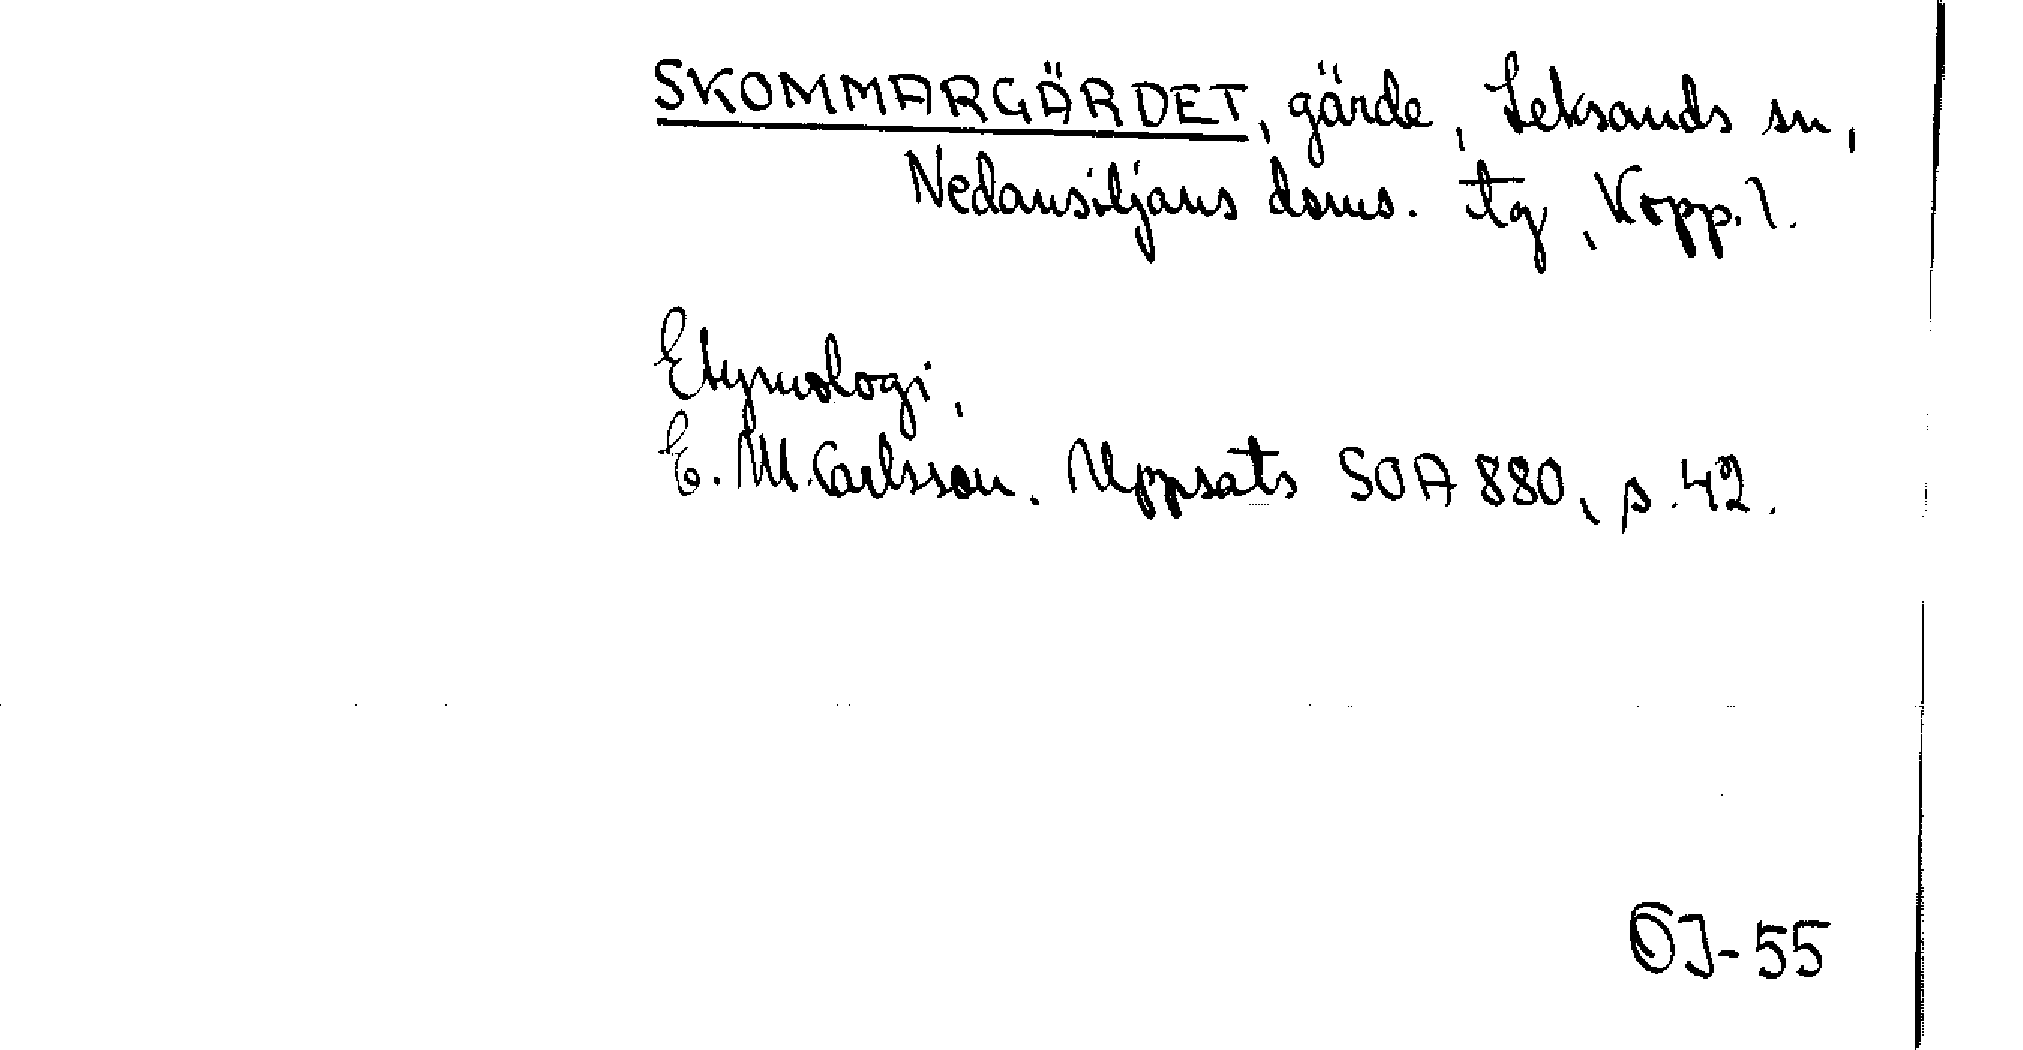 SKOMMARGÄRDET, gärde, Leksands sn,
Nedansiljans doms. tg, Kopp. l.
Etymologi,
E. M. Carlsson. Uppsats SOA 880, s. 42.
OJ-55